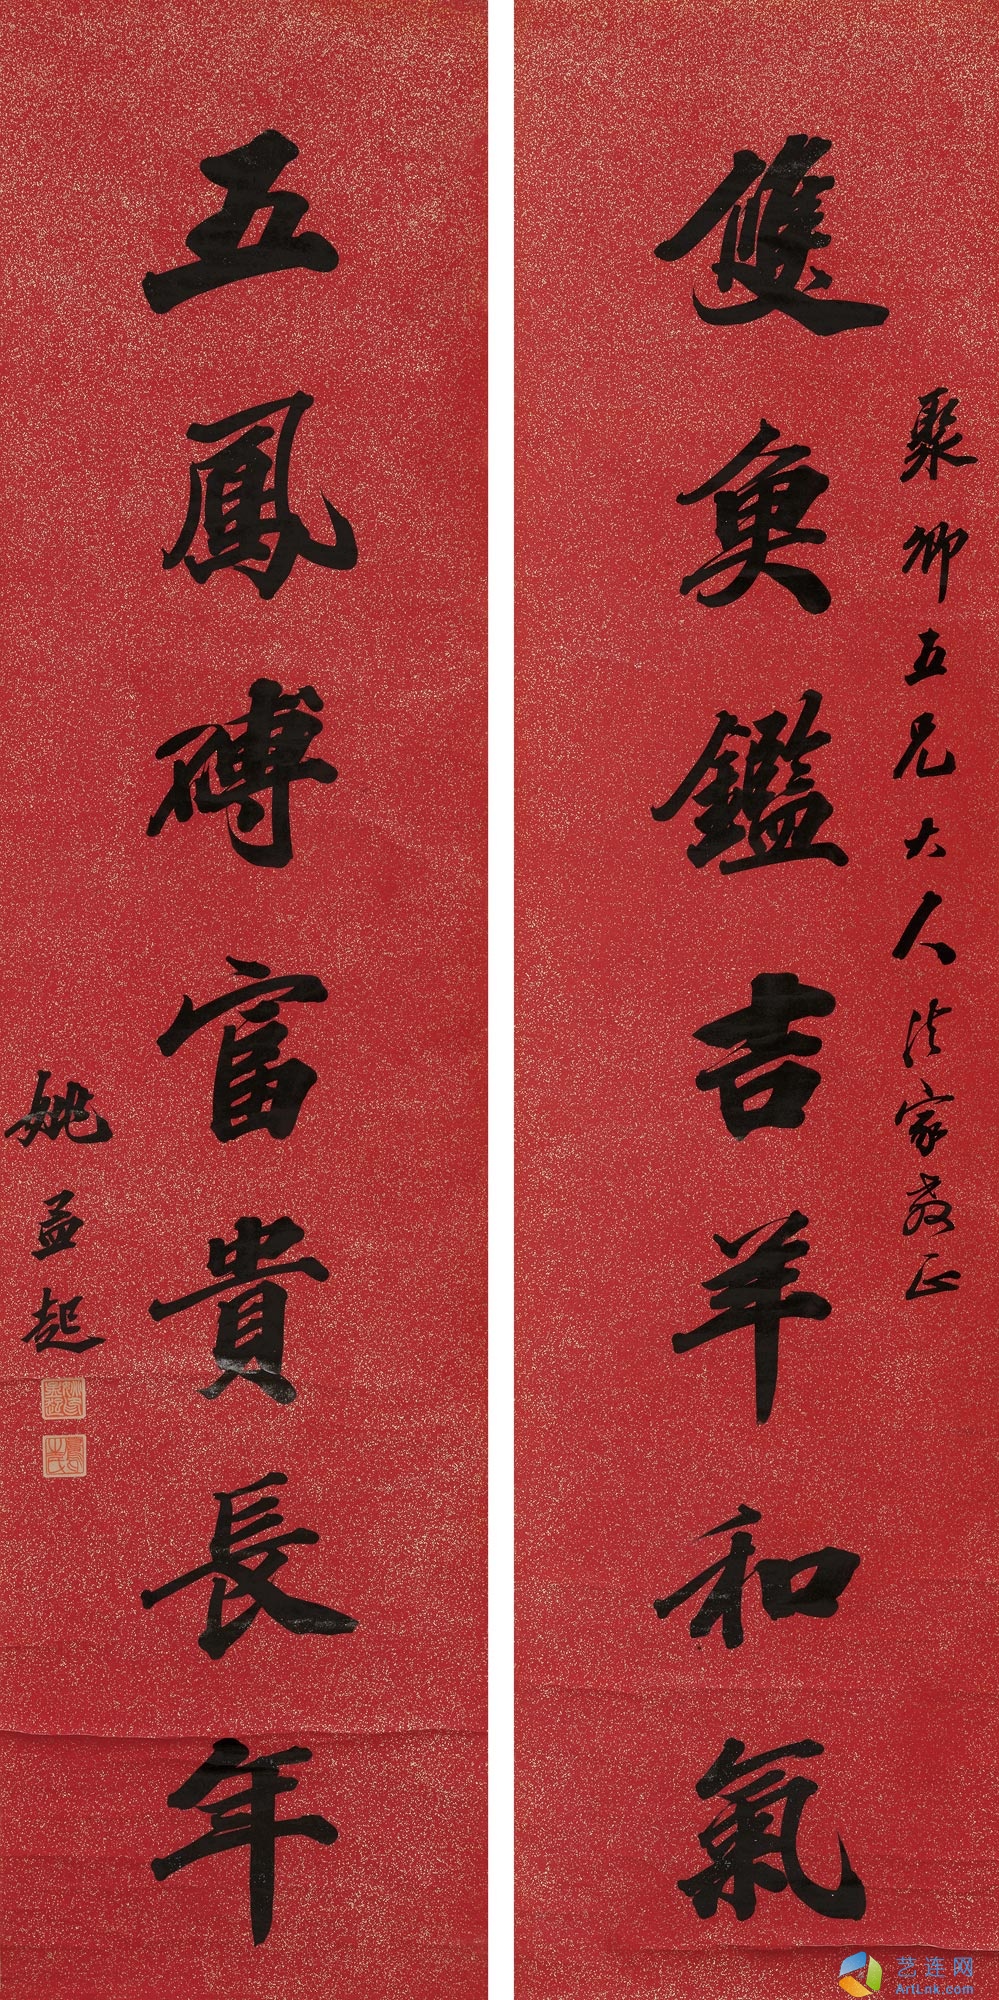 雙魚鑑吉羊和氣
聚卿五兄大人法家教正
五鳳磚富貴長年
姚孟起
艺连网
ArtLnk.com